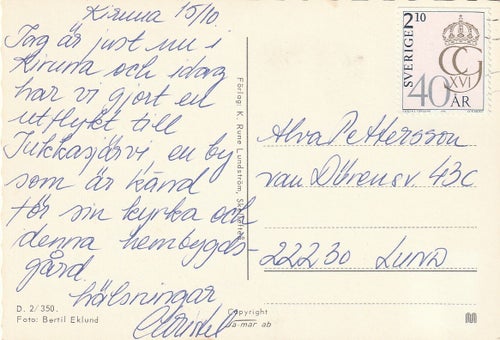 Kiruna 15/10.
Jag är just nu i
Kiruna och idag
har vi gjort en
utflykt till
Jukkasjärvi en by
som är känd
för sin kyrka och
denna hembygds-
gård.
hälsningar
D. 2/350.
Foto: Bertil Eklund
Förlag: K. Rune Lundström,
Copyright
a-mar ab
SVERIGE 2 10
CG
XVI
40
ÅR
Alva Pettersson
van Dürensv. 43C
22230 Lund